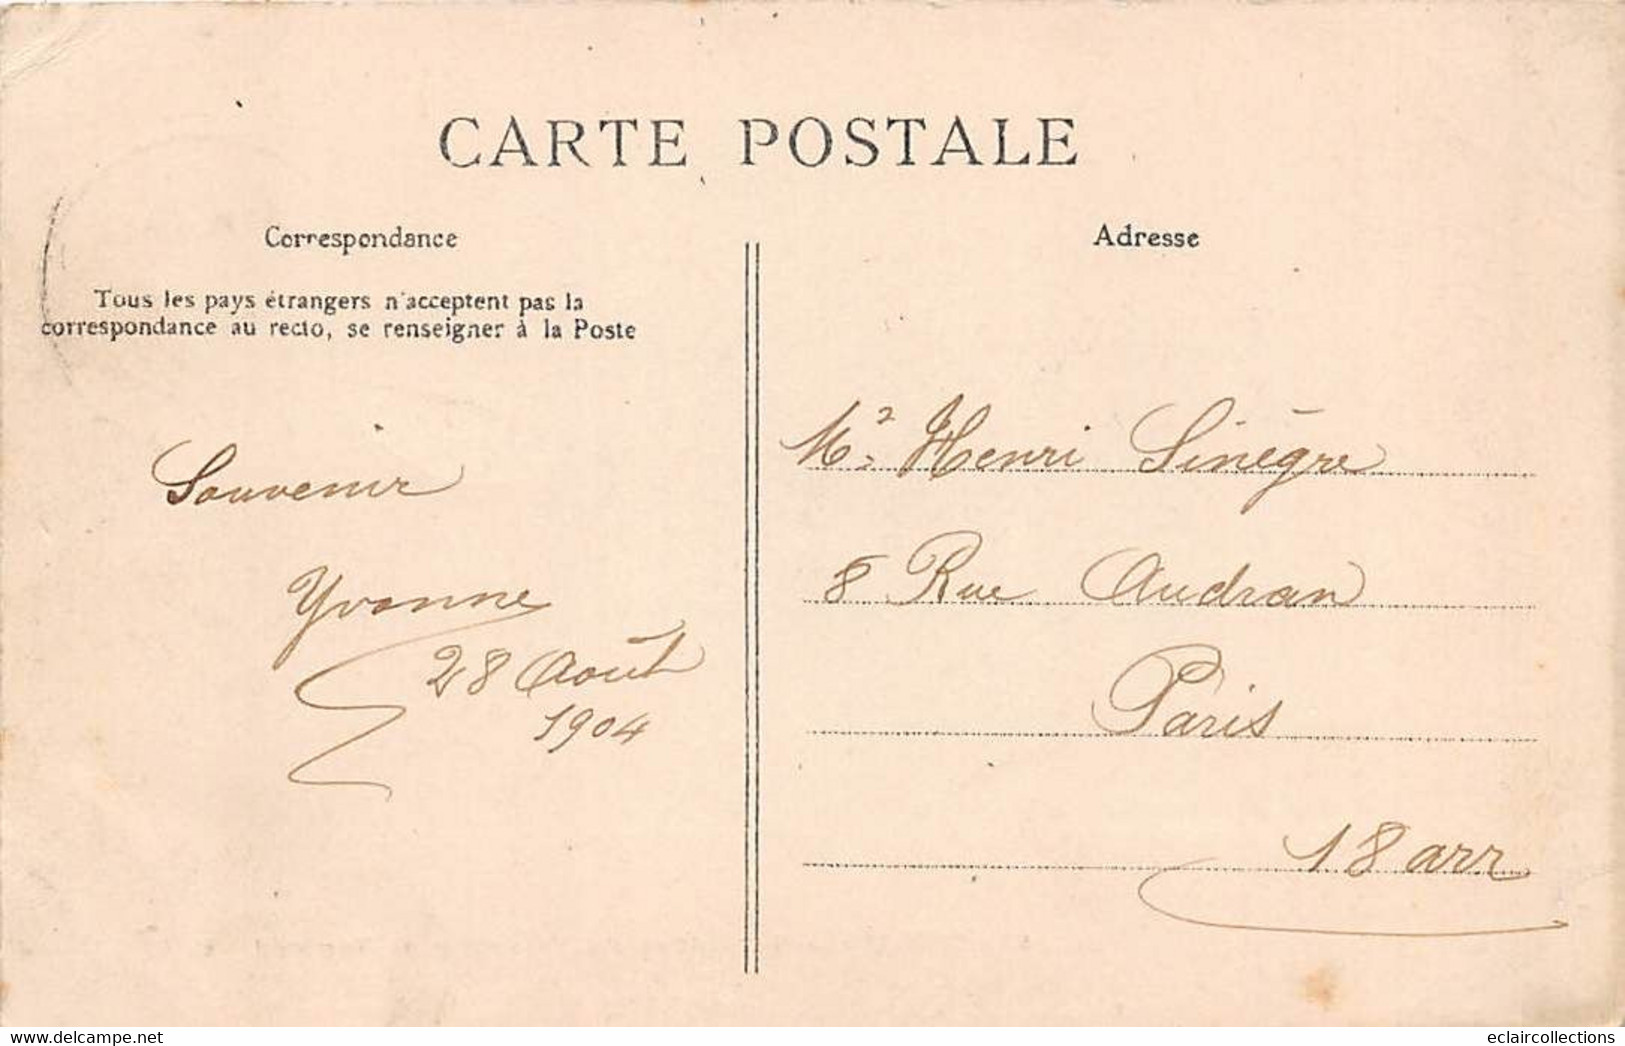 CARTE POSTALE
Correspondance
Tous les pays étrangers n'acceptent pas la
correspondance au recto, se renseigner à la Poste
Souvenir
Yvonne
28 Août
1904
Adresse
Mr Henri Sinègre
8 Rue Audran
Paris
18 arr
www.delcampe.net
eclaircollections